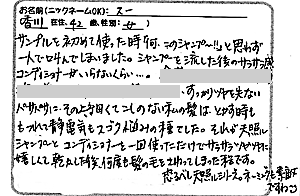 お名前(ニックネームOK): スー
香川 在住、42 歳、性別( 女 )
サンプルを初めて使った時、何、このシャンプー!!と思わず
一人で叫んでしまいました。シャンプーを流した後のサラサラ感
コンディショナーがいらないくらい…。
すっかりツヤを失ない
パサパサに。その上細くてこしのない私の髪は とかす時も
もつれて静電気もスゴク悩みの種でした。それが天照ル
シャンプーと コンディショナーを一回使っただけでサラサラツヤツヤに
嬉しくて乾んだ後、何度も髪の毛をさわってしまった程です。
恐るべし天照ルシリーズ。ネーミングも素敵
ですね